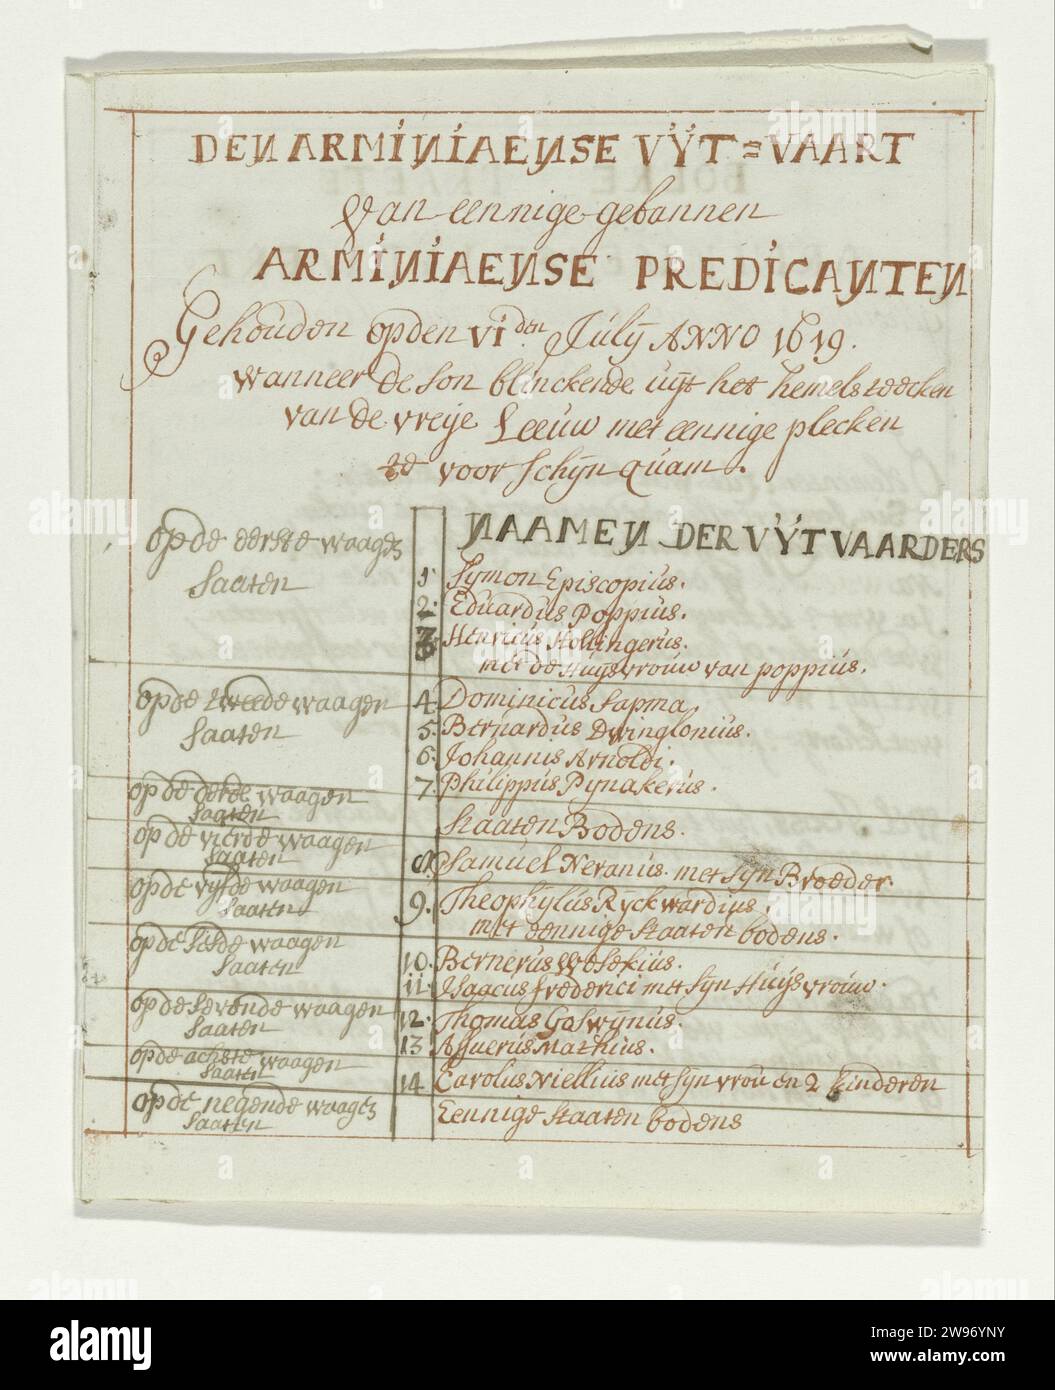 DEN ARMINIAENSE VŸT=VAART
Van eennige gebannen
ARMINIAENSE PREDICANTEN
Gehouden opden VI den July ANNO 1619.
wanneer de son blinckende uijt het hemels
van de vreije Leeuw met eennige plecken
te voorschijn quam.
NAAMEN DER VŸTVAARDERS
op de eerste waagen
saaten
1 Symon Episcopius.
2. Eduardus Poppius.
3 Henricus Hollingerus.
met de Huijsvrouw van poppius.
op de tweede waagen
saaten
4 Dominicus Sapma,
5. Bernardus Dwinglonius.
6. Johannis Arnoldi.
7. Philippus Pynakerus.
op de derde waagen
saaten
Staaten Bodens.
op de vierde waagen
saaten
8. Samuel Neranus. met syn Broeder.
op de vijfde waagen
saaten
9. Theophylus Ryckwardius.
met eennige staaten bodens.
op de sesde waagen
saaten
10. Bernerus Wesekius.
11. Isaacus frederici met syn Huijsvrouw.
op de sevende waagen
saaten
12. Thomas Goswijnus.
13 Assuerus Mathius.
op de achste waagen
saaten
14 Carolus Niellius met syn vrou en 2 kinderen
op de negende waagen
saaten
Eennige staaten bodens
alamy
Image ID: 2W96YNY
www.alamy.com